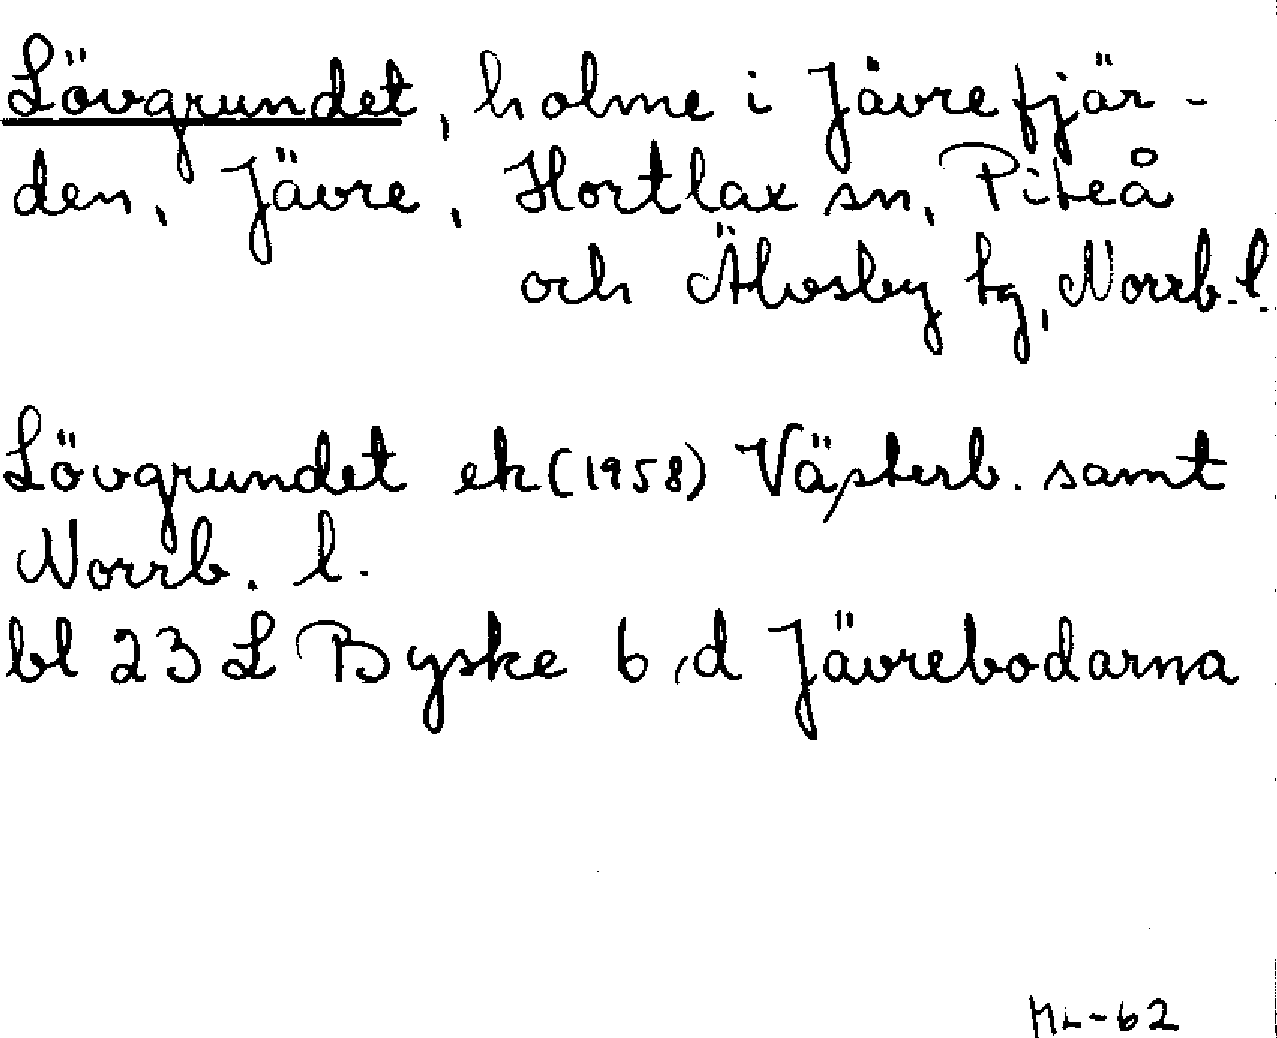 Lövgrundet, holme i Jävrefjär-
den, Jävre, Hortlax sn, Piteå
och Älvsby tg, Norrb. l.
Lövgrundet ek (1958) Västerb. samt
Norrb. l.
bl 23 L Byske b, d Jävrebodarna
-62